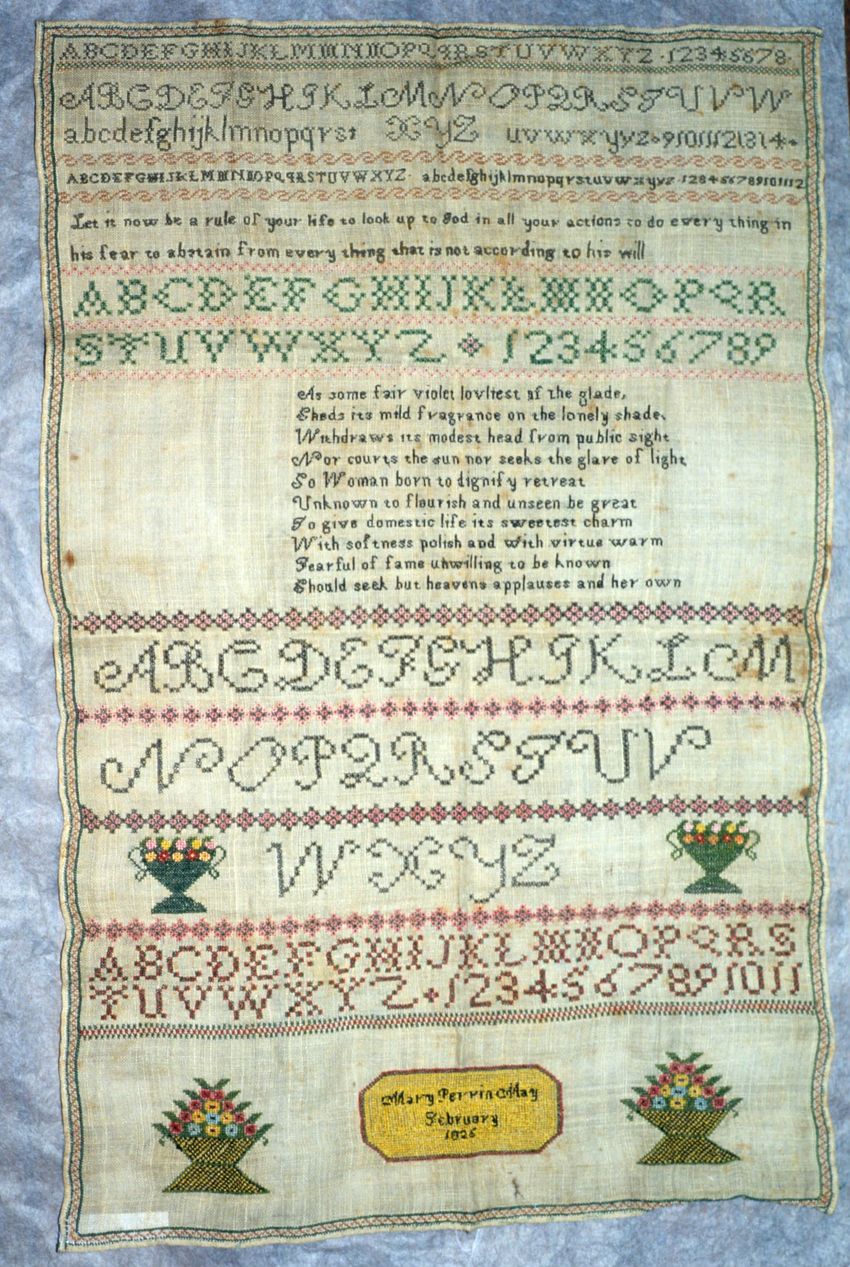 ABCDEFGHIJKLMNOPQRSTUVWXYZ·12345678·
ABCDEFGHIJKLMNOPQRSTUVW
abcdefghijklmnopqrst XYZ uvwxyz·91011121314·
ABCDEFGHIJKLMNOPQRSTUVWXYZ· abcdefghijklmnopqrstuvwxyz 123456789101112
Let it now be a rule of your life to look up to God in all your actions to do every thing in
his fear to abstain from every thing that is not according to his will
ABCDEFGHIJKLMNOPQR
STUVWXYZ 123456789
As some fair violet lovliest of the glade,
Sheds its mild fragrance on the lonely shade,
Withdraws its modest head from public sight
Nor courts the sun nor seeks the glare of light
So Woman born to dignify retreat
Unknown to flourish and unseen be great
To give domestic life its sweetest charm
With softness polish and with virtue warm
Fearful of fame unwilling to be known
Should seek but heavens applauses and her own
ABCDEFGHIJKLM
NOPQRSTUV
WXYZ
ABCDEFGHIJKLMNOPQRS
TUVWXYZ·1234567891011
Mary Perrin May
February
1826